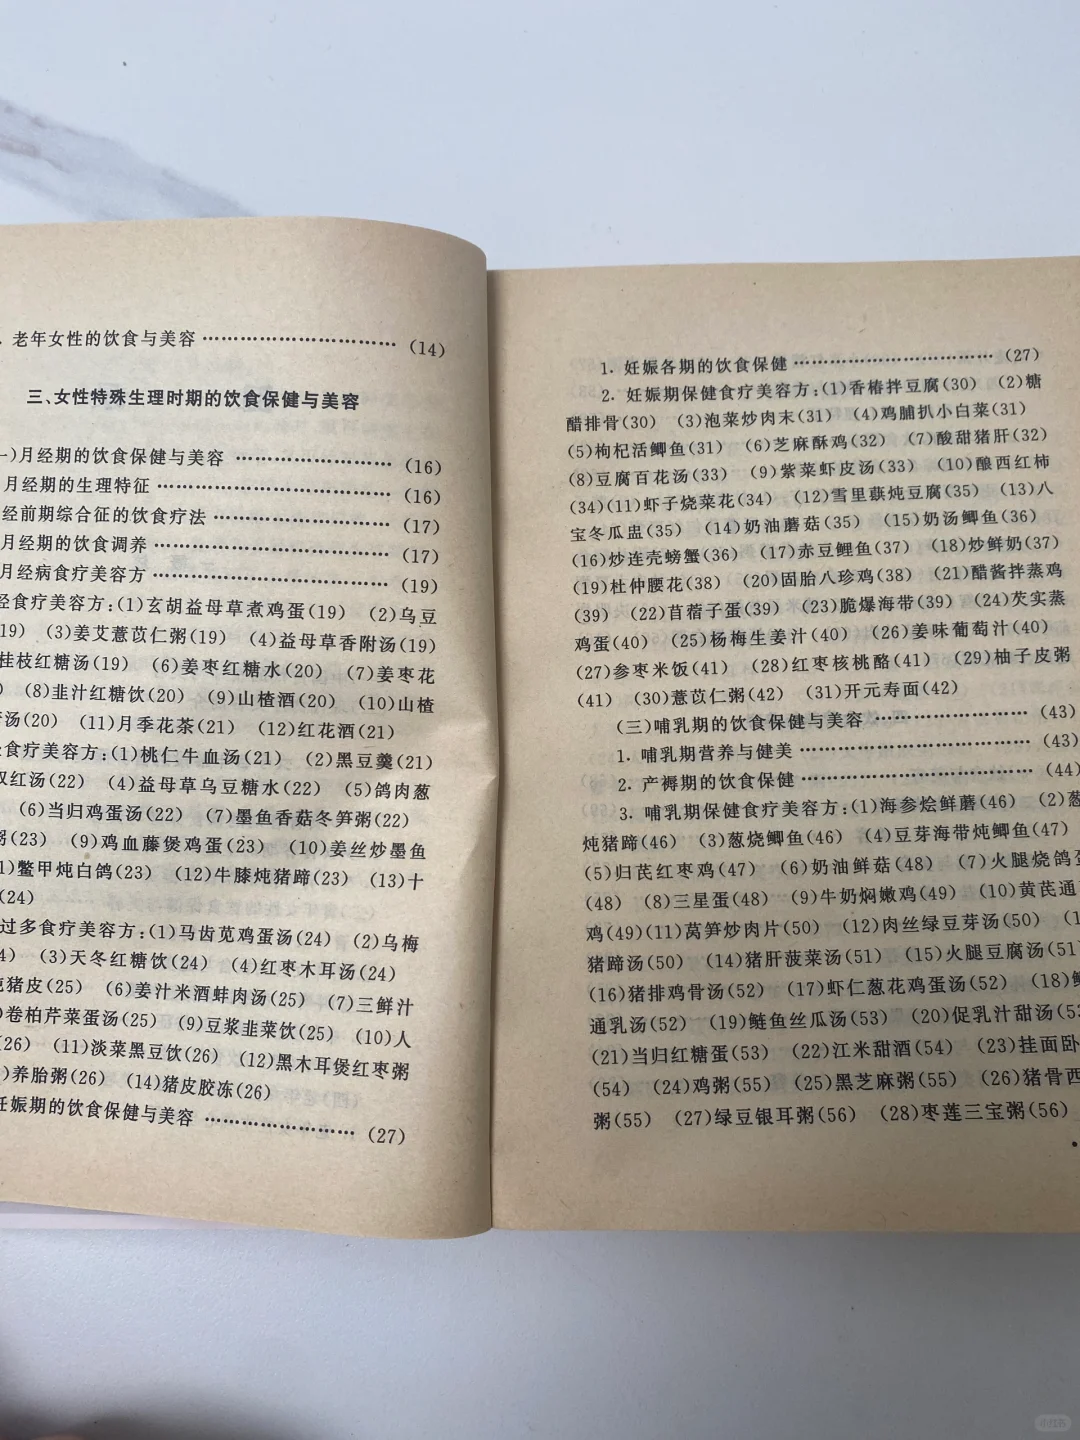 老年女性的饮食与美容……………………………(14)
三、女性特殊生理时期的饮食保健与美容
一)月经期的饮食保健与美容……………………(16)
月经期的生理特征………………………………(16)
经前期综合征的饮食疗法………………………(17)
月经期的饮食调养………………………………(17)
月经病食疗美容方………………………………(19)
经食疗美容方:(1)玄胡益母草煮鸡蛋(19) (2)乌豆
19) (3)姜艾薏苡仁粥(19) (4)益母草香附汤(19)
桂枝红糖汤(19) (6)姜枣红糖水(20) (7)姜枣花
) (8)韭汁红糖饮(20) (9)山楂酒(20) (10)山楂
汤(20) (11)月季花茶(21) (12)红花酒(21)
食疗美容方:(1)桃仁牛血汤(21) (2)黑豆羹(21)
红汤(22) (4)益母草乌豆糖水(22) (5)鸽肉葱
(6)当归鸡蛋汤(22) (7)墨鱼香菇冬笋粥(22)
粥(23) (9)鸡血藤煲鸡蛋(23) (10)姜丝炒墨鱼
1)鳖甲炖白鸽(23) (12)牛膝炖猪蹄(23) (13)十
(24)
过多食疗美容方:(1)马齿苋鸡蛋汤(24) (2)乌梅
4) (3)天冬红糖饮(24) (4)红枣木耳汤(24)
猪皮(25) (6)姜汁米酒蚌肉汤(25) (7)三鲜汁
卷柏芹菜蛋汤(25) (9)豆浆韭菜饮(25) (10)人
(26) (11)淡菜黑豆饮(26) (12)黑木耳煲红枣粥
)养胎粥(26) (14)猪皮胶冻(26)
妊娠期的饮食保健与美容………………………(27)
1. 妊娠各期的饮食保健……………………………(27)
2. 妊娠期保健食疗美容方:(1)香椿拌豆腐(30) (2)糖
醋排骨(30) (3)泡菜炒肉末(31) (4)鸡脯扒小白菜(31)
(5)枸杞活鲫鱼(31) (6)芝麻酥鸡(32) (7)酸甜猪肝(32)
(8)豆腐百花汤(33) (9)紫菜虾皮汤(33) (10)酿西红柿
(34)(11)虾子烧菜花(34) (12)雪里蕻炖豆腐(35) (13)八
宝冬瓜盅(35) (14)奶油蘑菇(35) (15)奶汤鲫鱼(36)
(16)炒连壳螃蟹(36) (17)赤豆鲤鱼(37) (18)炒鲜奶(37)
(19)杜仲腰花(38) (20)固胎八珍鸡(38) (21)醋酱拌蒸鸡
(39) (22)苜蓿子蛋(39) (23)脆爆海带(39) (24)芡实蒸
鸡蛋(40) (25)杨梅生姜汁(40) (26)姜味葡萄汁(40)
(27)参枣米饭(41) (28)红枣核桃酪(41) (29)柚子皮粥
(41) (30)薏苡仁粥(42) (31)开元寿面(42)
(三)哺乳期的饮食保健与美容……………………(43)
1. 哺乳期营养与健美………………………………(43)
2. 产褥期的饮食保健………………………………(44)
3. 哺乳期保健食疗美容方:(1)海参烩鲜蘑(46) (2)葱
炖猪蹄(46) (3)葱烧鲫鱼(46) (4)豆芽海带炖鲫鱼(47)
(5)归芪红枣鸡(47) (6)奶油鲜菇(48) (7)火腿烧鸽蛋
(48) (8)三星蛋(48) (9)牛奶焖嫩鸡(49) (10)黄芪通
鸡(49)(11)莴笋炒肉片(50) (12)肉丝绿豆芽汤(50) (1
猪蹄汤(50) (14)猪肝菠菜汤(51) (15)火腿豆腐汤(51)
(16)猪排鸡骨汤(52) (17)虾仁葱花鸡蛋汤(52) (18)
通乳汤(52) (19)鲢鱼丝瓜汤(53) (20)促乳汁甜汤(53
(21)当归红糖蛋(53) (22)江米甜酒(54) (23)挂面卧
(54) (24)鸡粥(55) (25)黑芝麻粥(55) (26)猪骨西
粥(55) (27)绿豆银耳粥(56) (28)枣莲三宝粥(56)